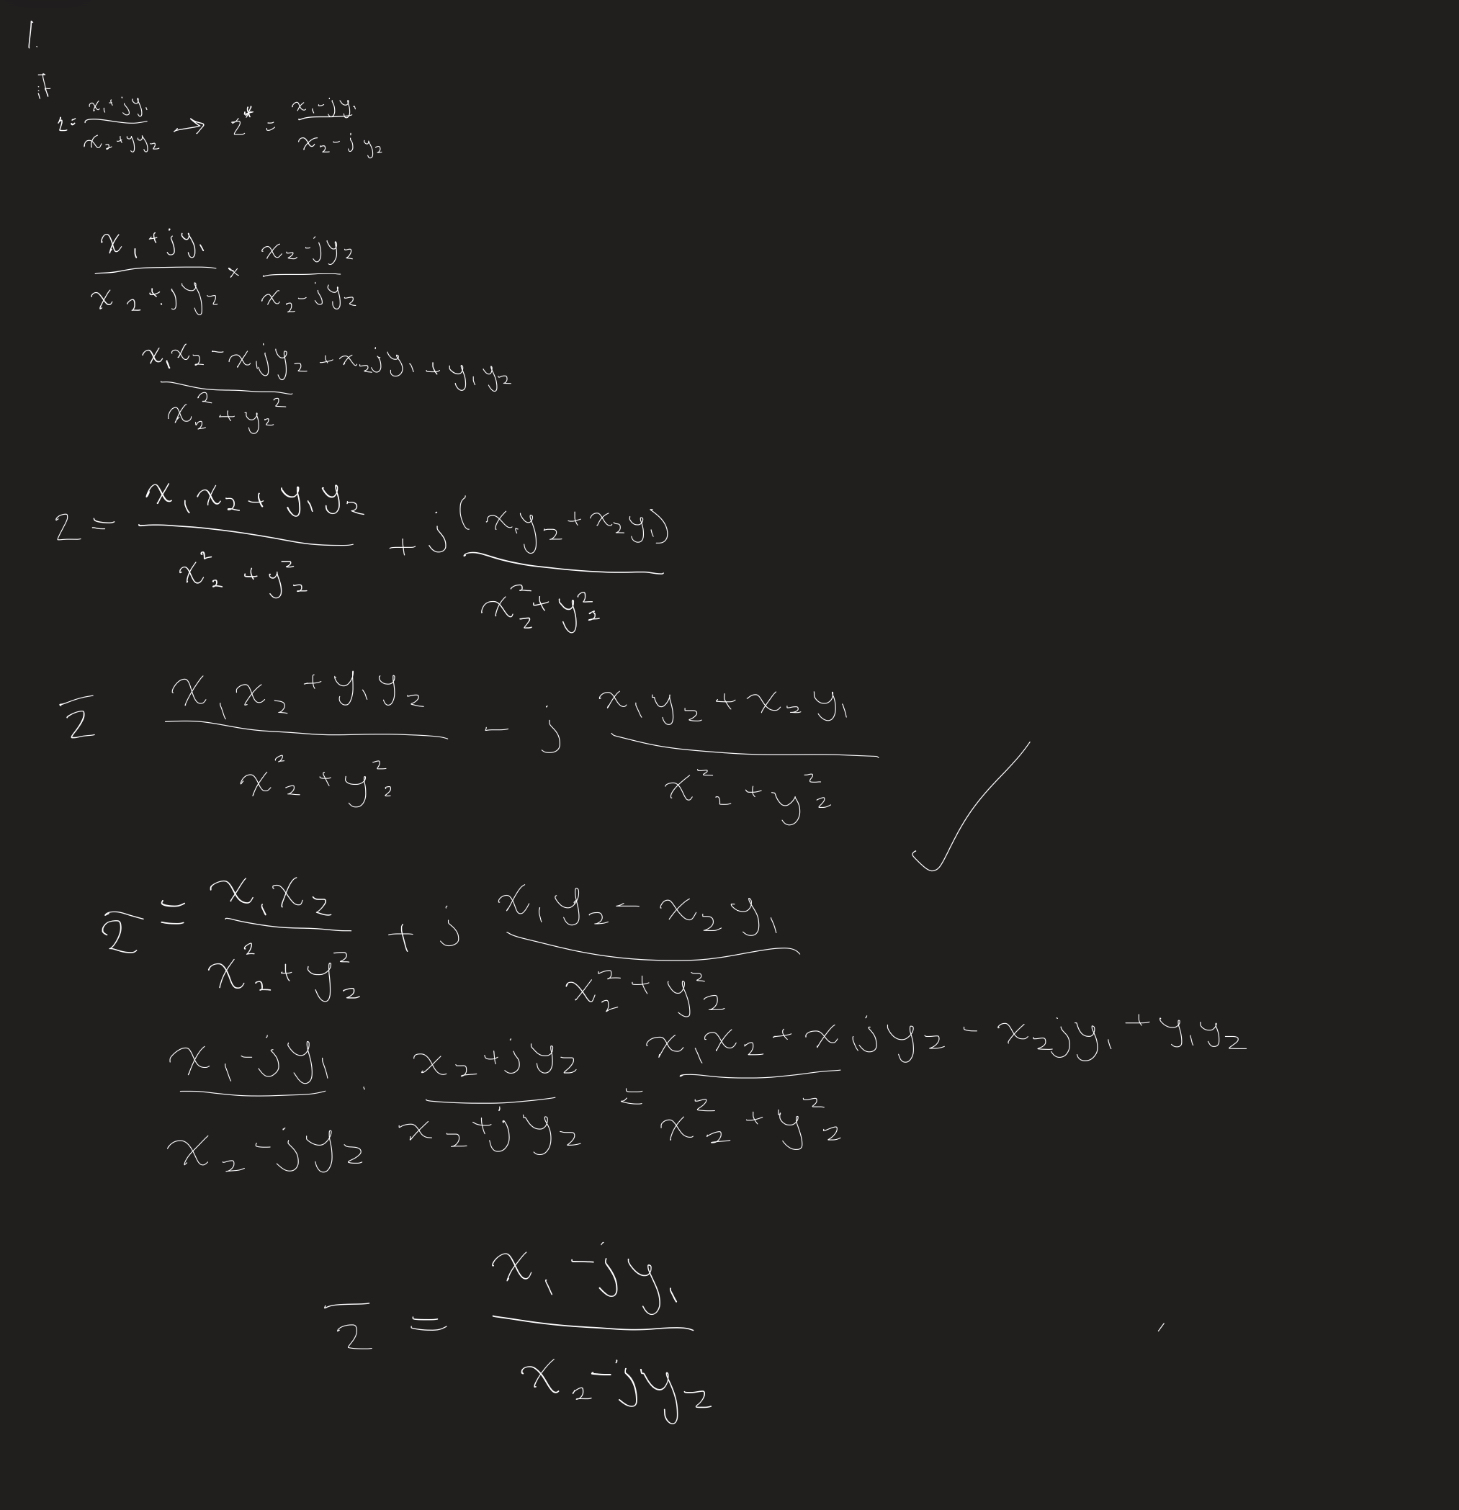 1.
if
z = (x₁+jy₁)/(x₂+yy₂) → z* = (x₁-jy₁)/(x₂-jy₂)
(x₁+jy₁)/(x₂+jy₂) × (x₂-jy₂)/(x₂-jy₂)
(x₁x₂ - x₁jy₂ + x₂jy₁ + y₁y₂)/(x₂² + y₂²)
z = (x₁x₂ + y₁y₂)/(x₂² + y₂²) + j (x₁y₂ + x₂y₁)/(x₂² + y₂²)
z̄ (x₁x₂ + y₁y₂)/(x₂² + y₂²) - j (x₁y₂ + x₂y₁)/(x₂² + y₂²) ✓
z̄ = (x₁x₂)/(x₂² + y₂²) + j (x₁y₂ - x₂y₁)/(x₂² + y₂²)
(x₁-jy₁)/(x₂-jy₂) · (x₂+jy₂)/(x₂+jy₂) = (x₁x₂ + x₁jy₂ - x₂jy₁ + y₁y₂)/(x₂² + y₂²)
z̄ = (x₁-jy₁)/(x₂-jy₂)